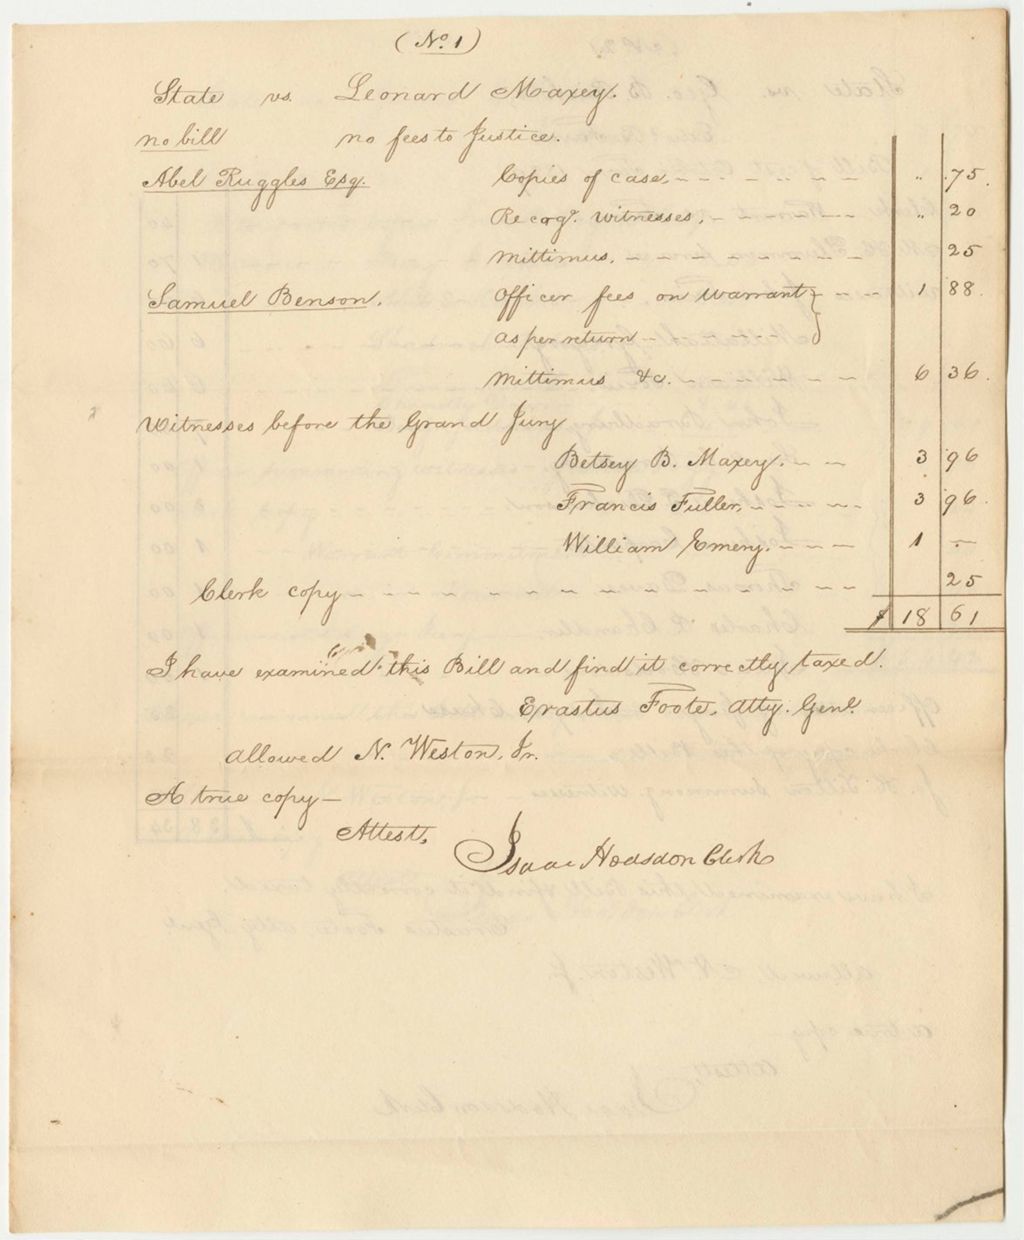 (No. 1)
State vs. Leonard Maxey.
no bill no fees to Justice.
Abel Ruggles Esq. Copies of case, " .75.
Recogs. witnesses. " 20
Mittimus. 25
Samuel Benson. Officer fees on warrant } 1 88
as per return
Mittimus &c. 6 36.
Witnesses before the Grand Jury
Betsey B. Maxey. 3 96
Francis Fuller, 3 96.
William Emery. 1 —
Clerk copy 25
$ 18 61
I have examined this Bill and find it correctly taxed.
Erastus Foote, Atty. Genl.
Allowed N. Weston, Jr.
A true copy—
Attest,
Isaac Hodsdon Clerk